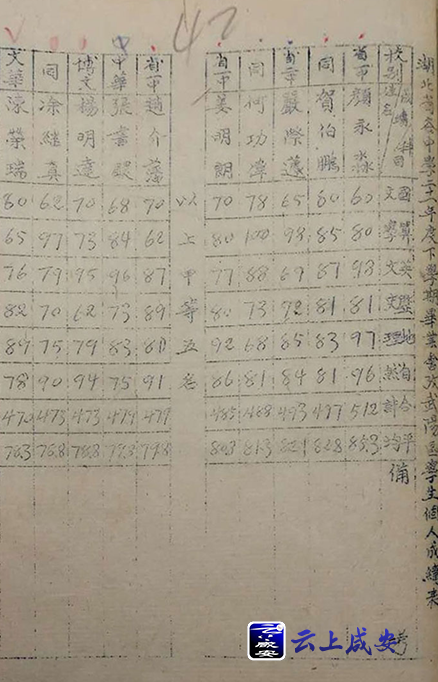 47
湖北省各中學二十二年度下學期畢業會攷武陽區學生個人成績表
校別 姓名 成績 科目 國文 算學 英文 歷史 地理 自然 合計 平均 備考
省一中 顏永淼 60 80 93 81 97 96 512 85.3
同 賀伯鵬 80 85 87 81 83 81 497 82.8
嚴際蓮 65 98 69 92 85 84 493 82.1
同 何功偉 78 100 88 73 68 81 488 81.3
姜明朗 70 80 77 80 92 86 485 80.8
以上甲等五名
趙介藩 70 62 87 89 80 91 479 79.8
中華 張 68 84 96 73 83 75 479 79.8
博文 楊明達 70 73 95 62 79 94 473 78.8
同 涂繼真 62 97 79 70 75 90 473 78.8
文華 榮瑞 80 65 76 82 89 78 470 78.3
云上咸安